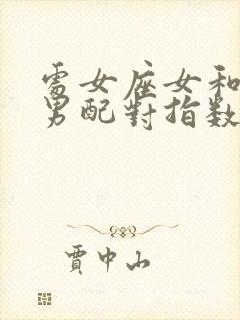 處女座女和
男配對指数
賈中山